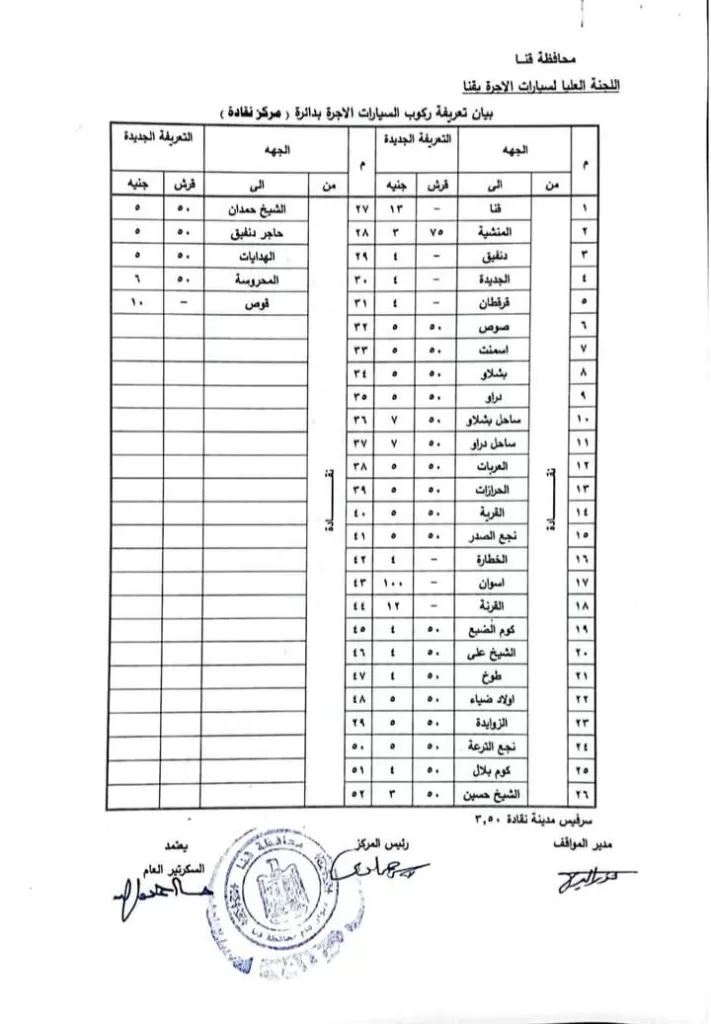 محافظة قنـا
اللجنة العليا لسيارات الاجرة بقنا
بيان تعريفة ركوب السيارات الاجرة بدائرة ( مركز نقادة )
م الجهه التعريفة الجديدة م الجهه التعريفة الجديدة
من الى قرش جنيه من الى قرش جنيه
نقـــــادة
نقـــــادة
١ قنا – ١٣ ٢٧ الشيخ حمدان ٥٠ ٥
٢ المنشية ٧٥ ٣ ٢٨ حاجر دنفيق ٥٠ ٥
٣ دنفيق – ٤ ٢٩ الهدايات ٥٠ ٥
٤ الجديدة – ٤ ٣٠ المحروسة ٥٠ ٦
٥ قرقطان – ٤ ٣١ قوص – ١٠
٦ صوص ٥٠ ٥ ٣٢
٧ اسمنت ٥٠ ٥ ٣٣
٨ بشلاو ٥٠ ٥ ٣٤
٩ دراو ٥٠ ٥ ٣٥
١٠ ساحل بشلاو ٥٠ ٧ ٣٦
١١ ساحل دراو ٥٠ ٧ ٣٧
١٢ العربات ٥٠ ٥ ٣٨
١٣ الحرازات ٥٠ ٥ ٣٩
١٤ القرية ٥٠ ٥ ٤٠
١٥ نجع الصدر ٥٠ ٥ ٤١
١٦ الخطارة – ٤ ٤٢
١٧ اسوان – ١٠٠ ٤٣
١٨ القرنة – ١٢ ٤٤
١٩ كوم الضبع ٥٠ ٤ ٤٥
٢٠ الشيخ على ٥٠ ٤ ٤٦
٢١ طوخ ٥٠ ٤ ٤٧
٢٢ اولاد ضياء ٥٠ ٥ ٤٨
٢٣ الزوايدة ٥٠ ٥ ٢٩
٢٤ نجع الترعة ٥٠ ٥ ٥٠
٢٥ كوم بلال ٥٠ ٤ ٥١
٢٦ الشيخ حسين ٥٠ ٣ ٥٢
سرفيس مدينة نقادة ٣,٥٠
مدير المواقف رئيس المركز يعتمد
السكرتير العام
محافظة قنا
ديوان عام محافظة قنا